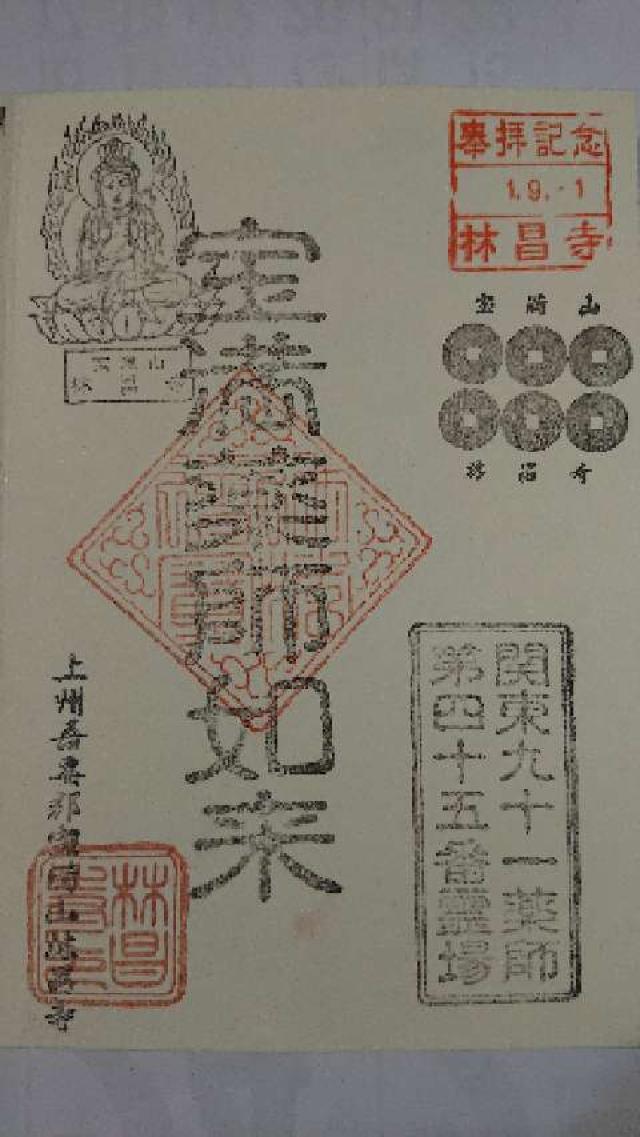 奉拝記念
1.9.-1
林昌寺
宝満山
林昌寺
関東九十一薬師
第四十五番霊場
宝満薬師如来
上州吾妻郡宝満山林昌寺